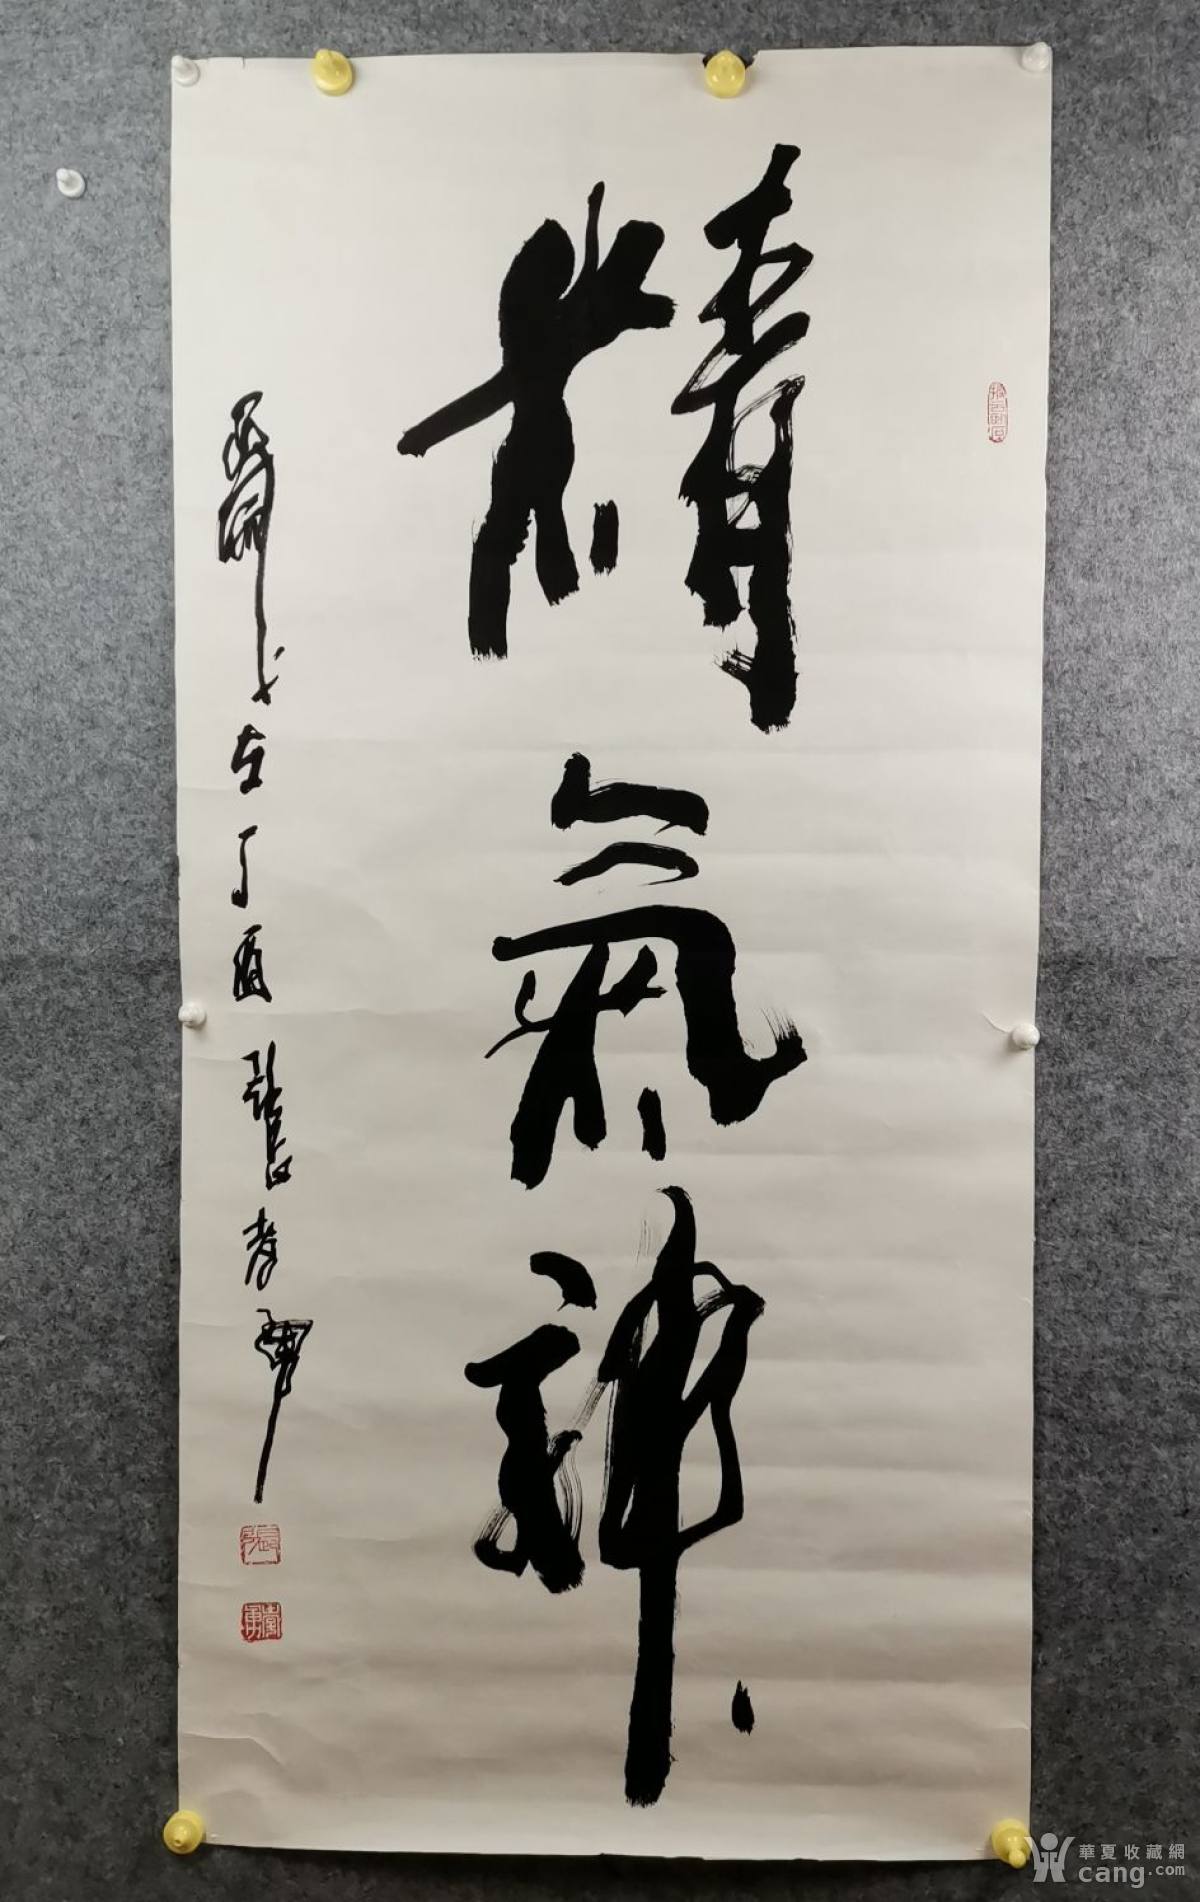 精氣神
歲在丁酉張孝勇
張
孝勇
華夏收藏網
cang.com